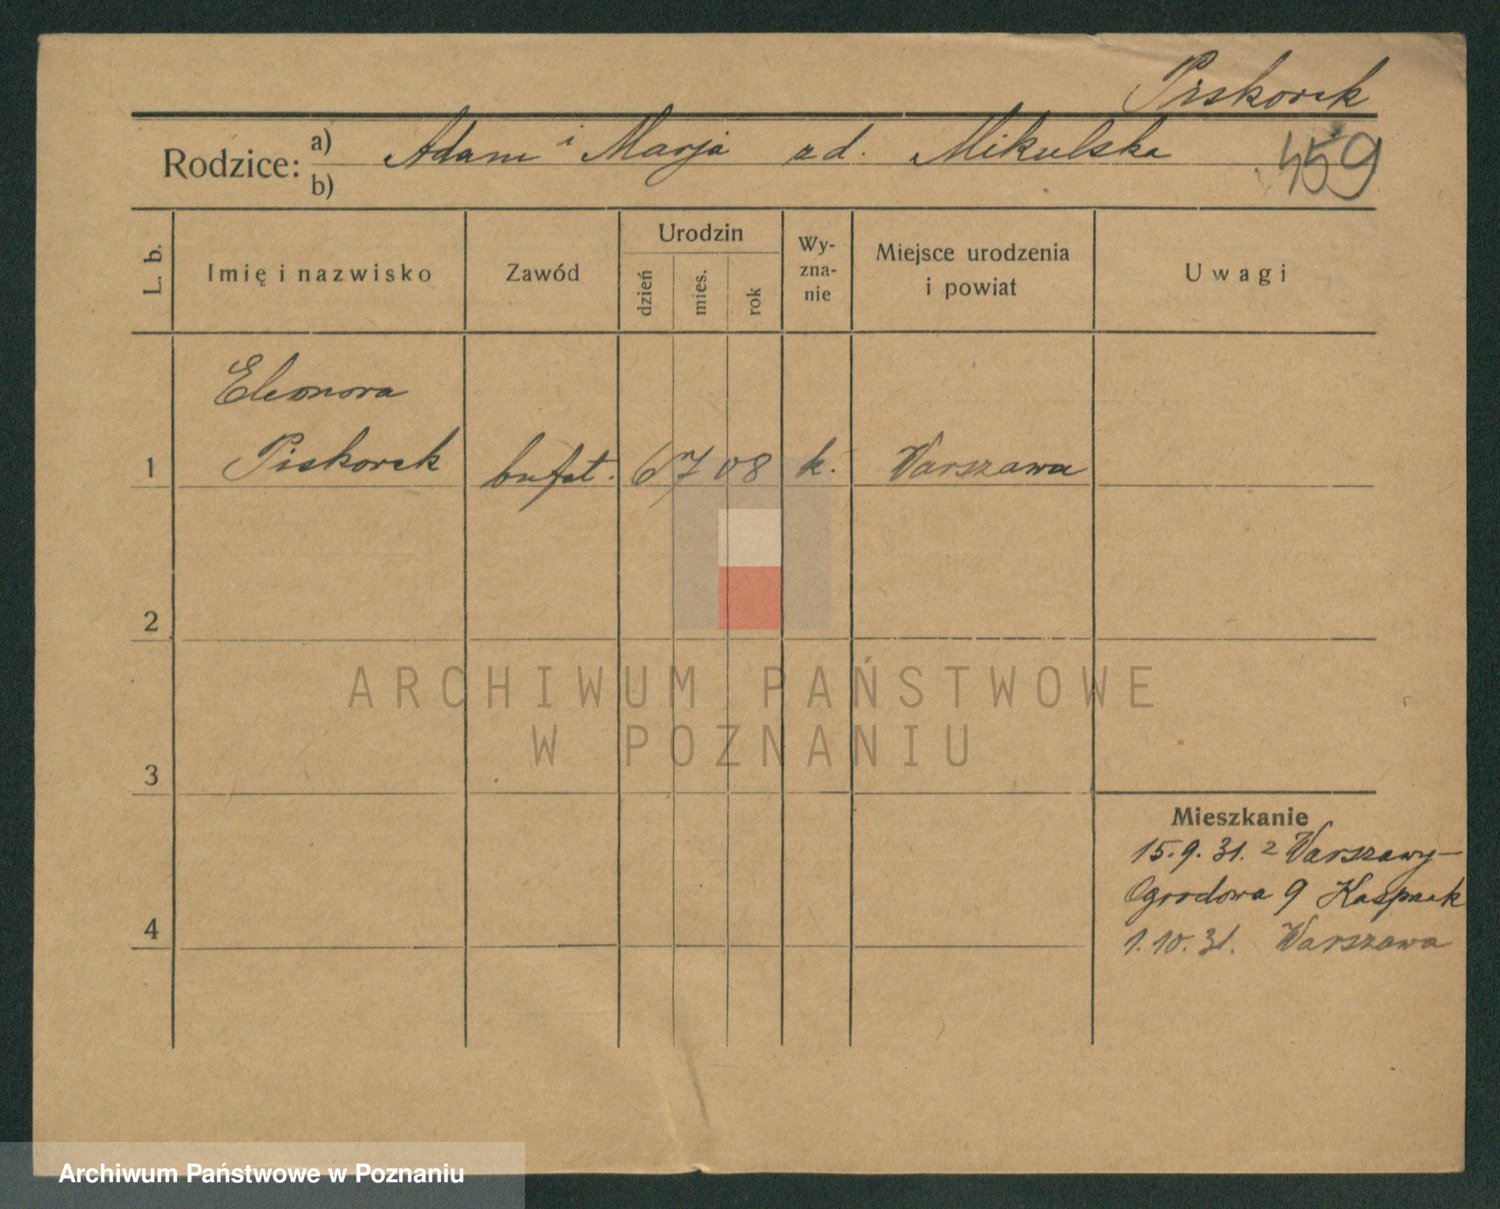 Piskorek
Rodzice: a) Adam i Marja zd. Mikulska
b)
459
L. b.
Imię i nazwisko
Zawód
Urodzin
dzień
mies.
rok
Wy-
zna-
nie
Miejsce urodzenia
i powiat
Uwagi
Eleonora
1 Piskorek bufet. 6 7 08 k. Warszawa
2
3
4
Mieszkanie
15.9.31. z Warszawy
Ogrodowa 9 Kasprzak
1.10.31. Warszawa
ARCHIWUM PAŃSTWOWE
W POZNANIU
Archiwum Państwowe w Poznaniu